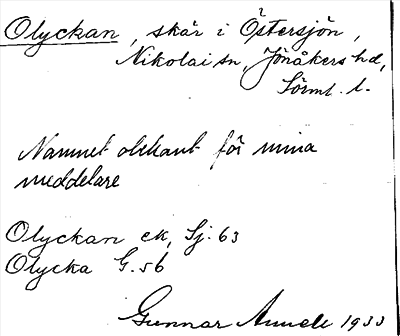 Olyckan, skär i Östersjön,
Nikolai sn, Jönåkers hd,
Sörml. l.
Namnet obekant för mina
meddelare
Olyckan ek, Sj. 63
Olycka G. 56
Gunnar 1933